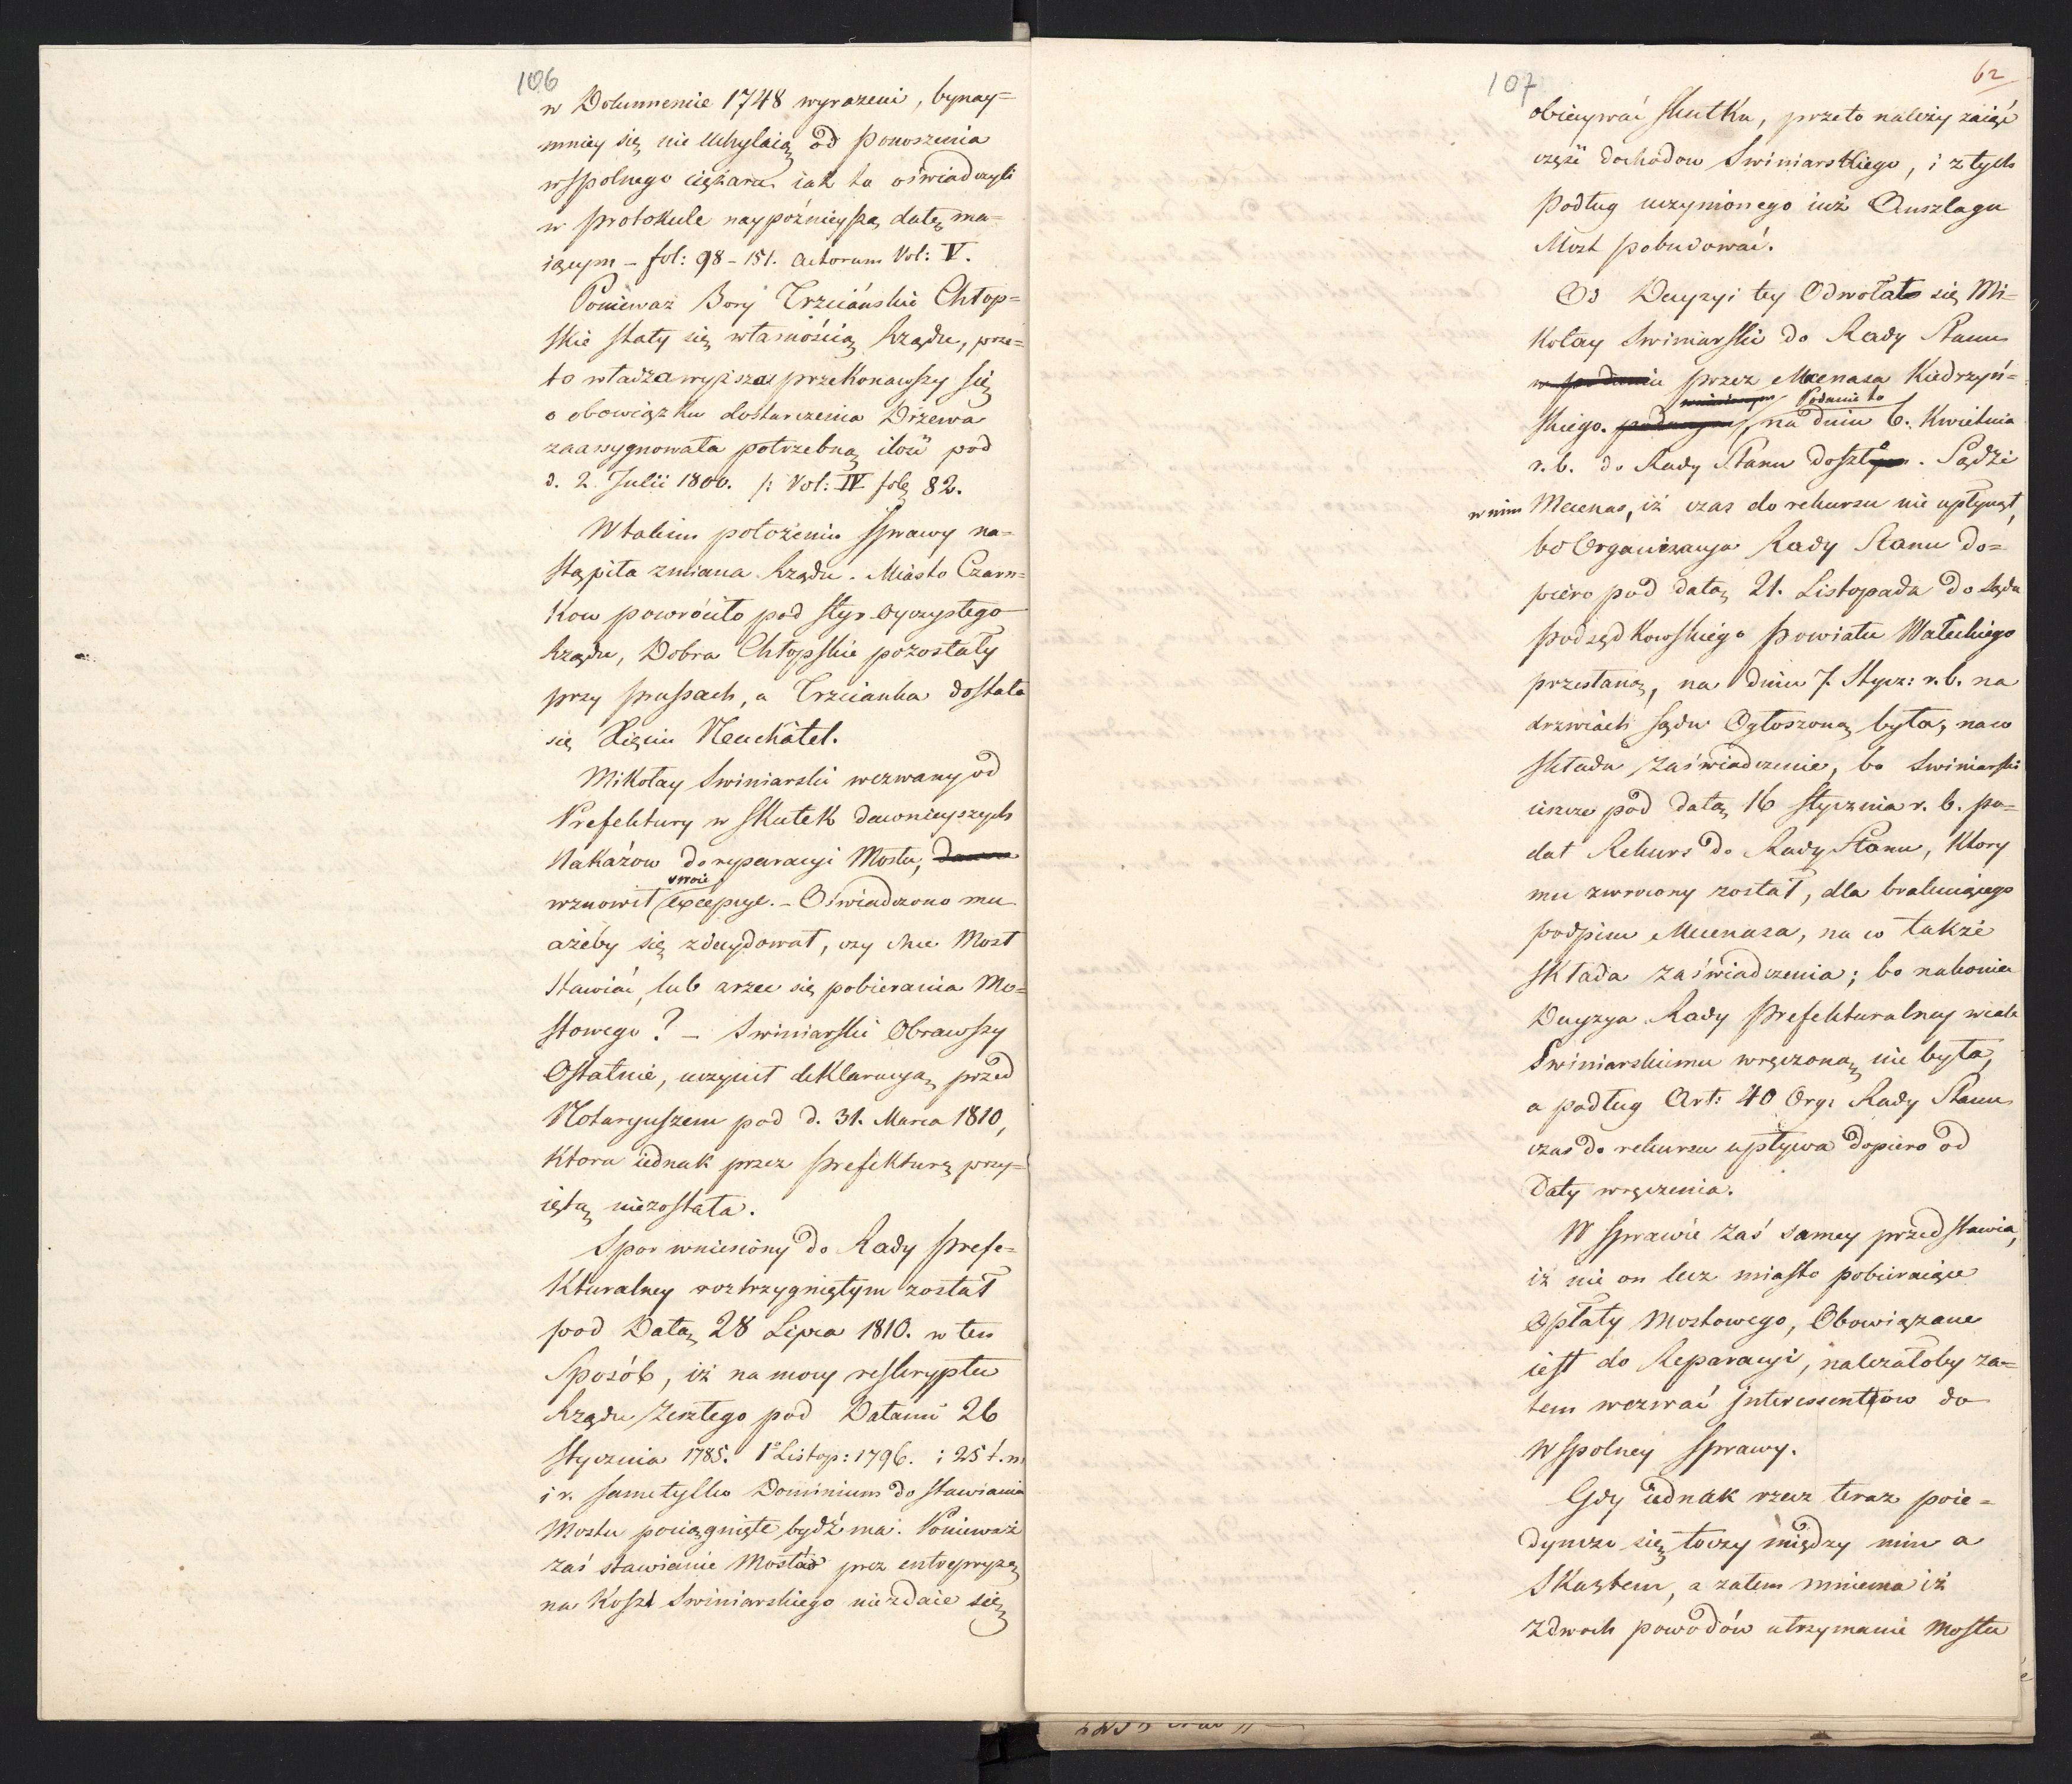 106
w Dokumencie 1748 wyrażeni, bynay=
mniey się nie uchylaią od ponoszenia
wspolnego ciężaru iak to oświadczyli
w protokule naypóźnieyszą datę ma=
iącym – fol: 98–151. actorum Vol: V.
Ponieważ Bory Trzciańskie Chłop=
skie stały się własnością Rządu, prze=
to władza wyższa przekonawszy się
o obowiązku dostarczenia Drzewa
zaasygnowała potrzebną ilość pod
d. 2. Julii 1800. /: Vol: IV fol. 82.
W takim położeniu sprawy na=
stąpiła zmiana Rządu. Miasto Czarn=
kow powróciło pod styr oyczystego
Rządu, Dobra Chłopskie pozostały
przy Prussach, a Trzcianka dostała
się Xięciu Neuchâtel.
Mikołay Swiniarski wezwany od
Prefektury w skutek dawnieyszych
Nakazow do reparacyi Mostu,
wznowił swoie excepcye. – Oświadczono mu
ażeby się zdecydował, czy chce Most
stawiać, lub zrzec się pobierania Mo=
stowego? – Swiniarski Obrawszy
Ostatnie, uczynił deklaracyą przed
Notaryuszem pod d. 31. Marca 1810,
ktora iednak przez Prefekturę przy=
iętą niezostała.
Spor wniesiony do Rady Prefe=
kturalney roztrzygniętym został
pod Datą 28 Lipca 1810. w ten
Sposób, iż na mocy reskryptu
Rządu Zeszłego pod Datami 26
Stycznia 1785. 1º Listop: 1796. i 25 t. m
i r. same tylko Dominium do stawiania
Mostu pociągnięte bydź ma. Ponieważ
zaś stawianie Mostu prez entrepryzę
na koszt Swiniarskiego niezdaie się
107
62
obiecywać skutku, przeto należy zaiąć
część dochodow Swiniarskiego, i z tych
podług uczynionego iuż Anszlagu
Most pobudować.
Od Decyzyi tey Odwołał się Mi=
kołay Swiniarski do Rady Stanu
przez Mecenasa Kiedrzyń=
skiego. Podanie to na dniu 6. Kwietnia
r. b. do Rady Stanu doszło. Sądzi
w nim Mecenas, iż czas do rekursu nie upłynął,
bo Organizacya Rady Stanu do=
piero pod datą 21. Listopada do Sądu
podsędkowskiego Powiatu Wałeckiego
przesłaną, na dniu 7. Stycz: r. b. na
drzwiach Sądu Ogłoszoną była, na co
składa zaświadczenie, bo Swiniarski
ieszcze pod datą 16 stycznia r. b. po=
dał Rekurs do Rady Stanu, Ktory
mu zwrocony został, dla brakuiącego
podpisu Mecenasa, na co także
składa zaświadczenia; bo nakoniec
Decyzya Rady Prefekturalney wcale
Swiniarskiemu wręczoną nie była,
a podług Art: 40 Org: Rady Stanu
czas do rekursu upływa dopiero od
Daty wręczenia.
W sprawie zaś samey przedstawia,
iż nie on lecz miasto pobieraiące
Opłaty Mostowego, Obowiązane
iest do Reparacyi, należałoby za=
tem wezwać Interessentow do
Wspolney Sprawy.
Gdy iednak rzecz teraz poie=
dynczo się toczy między nim a
Skarbem, a zatem mniema iż
z dwoch powodów utrzymanie Mostu